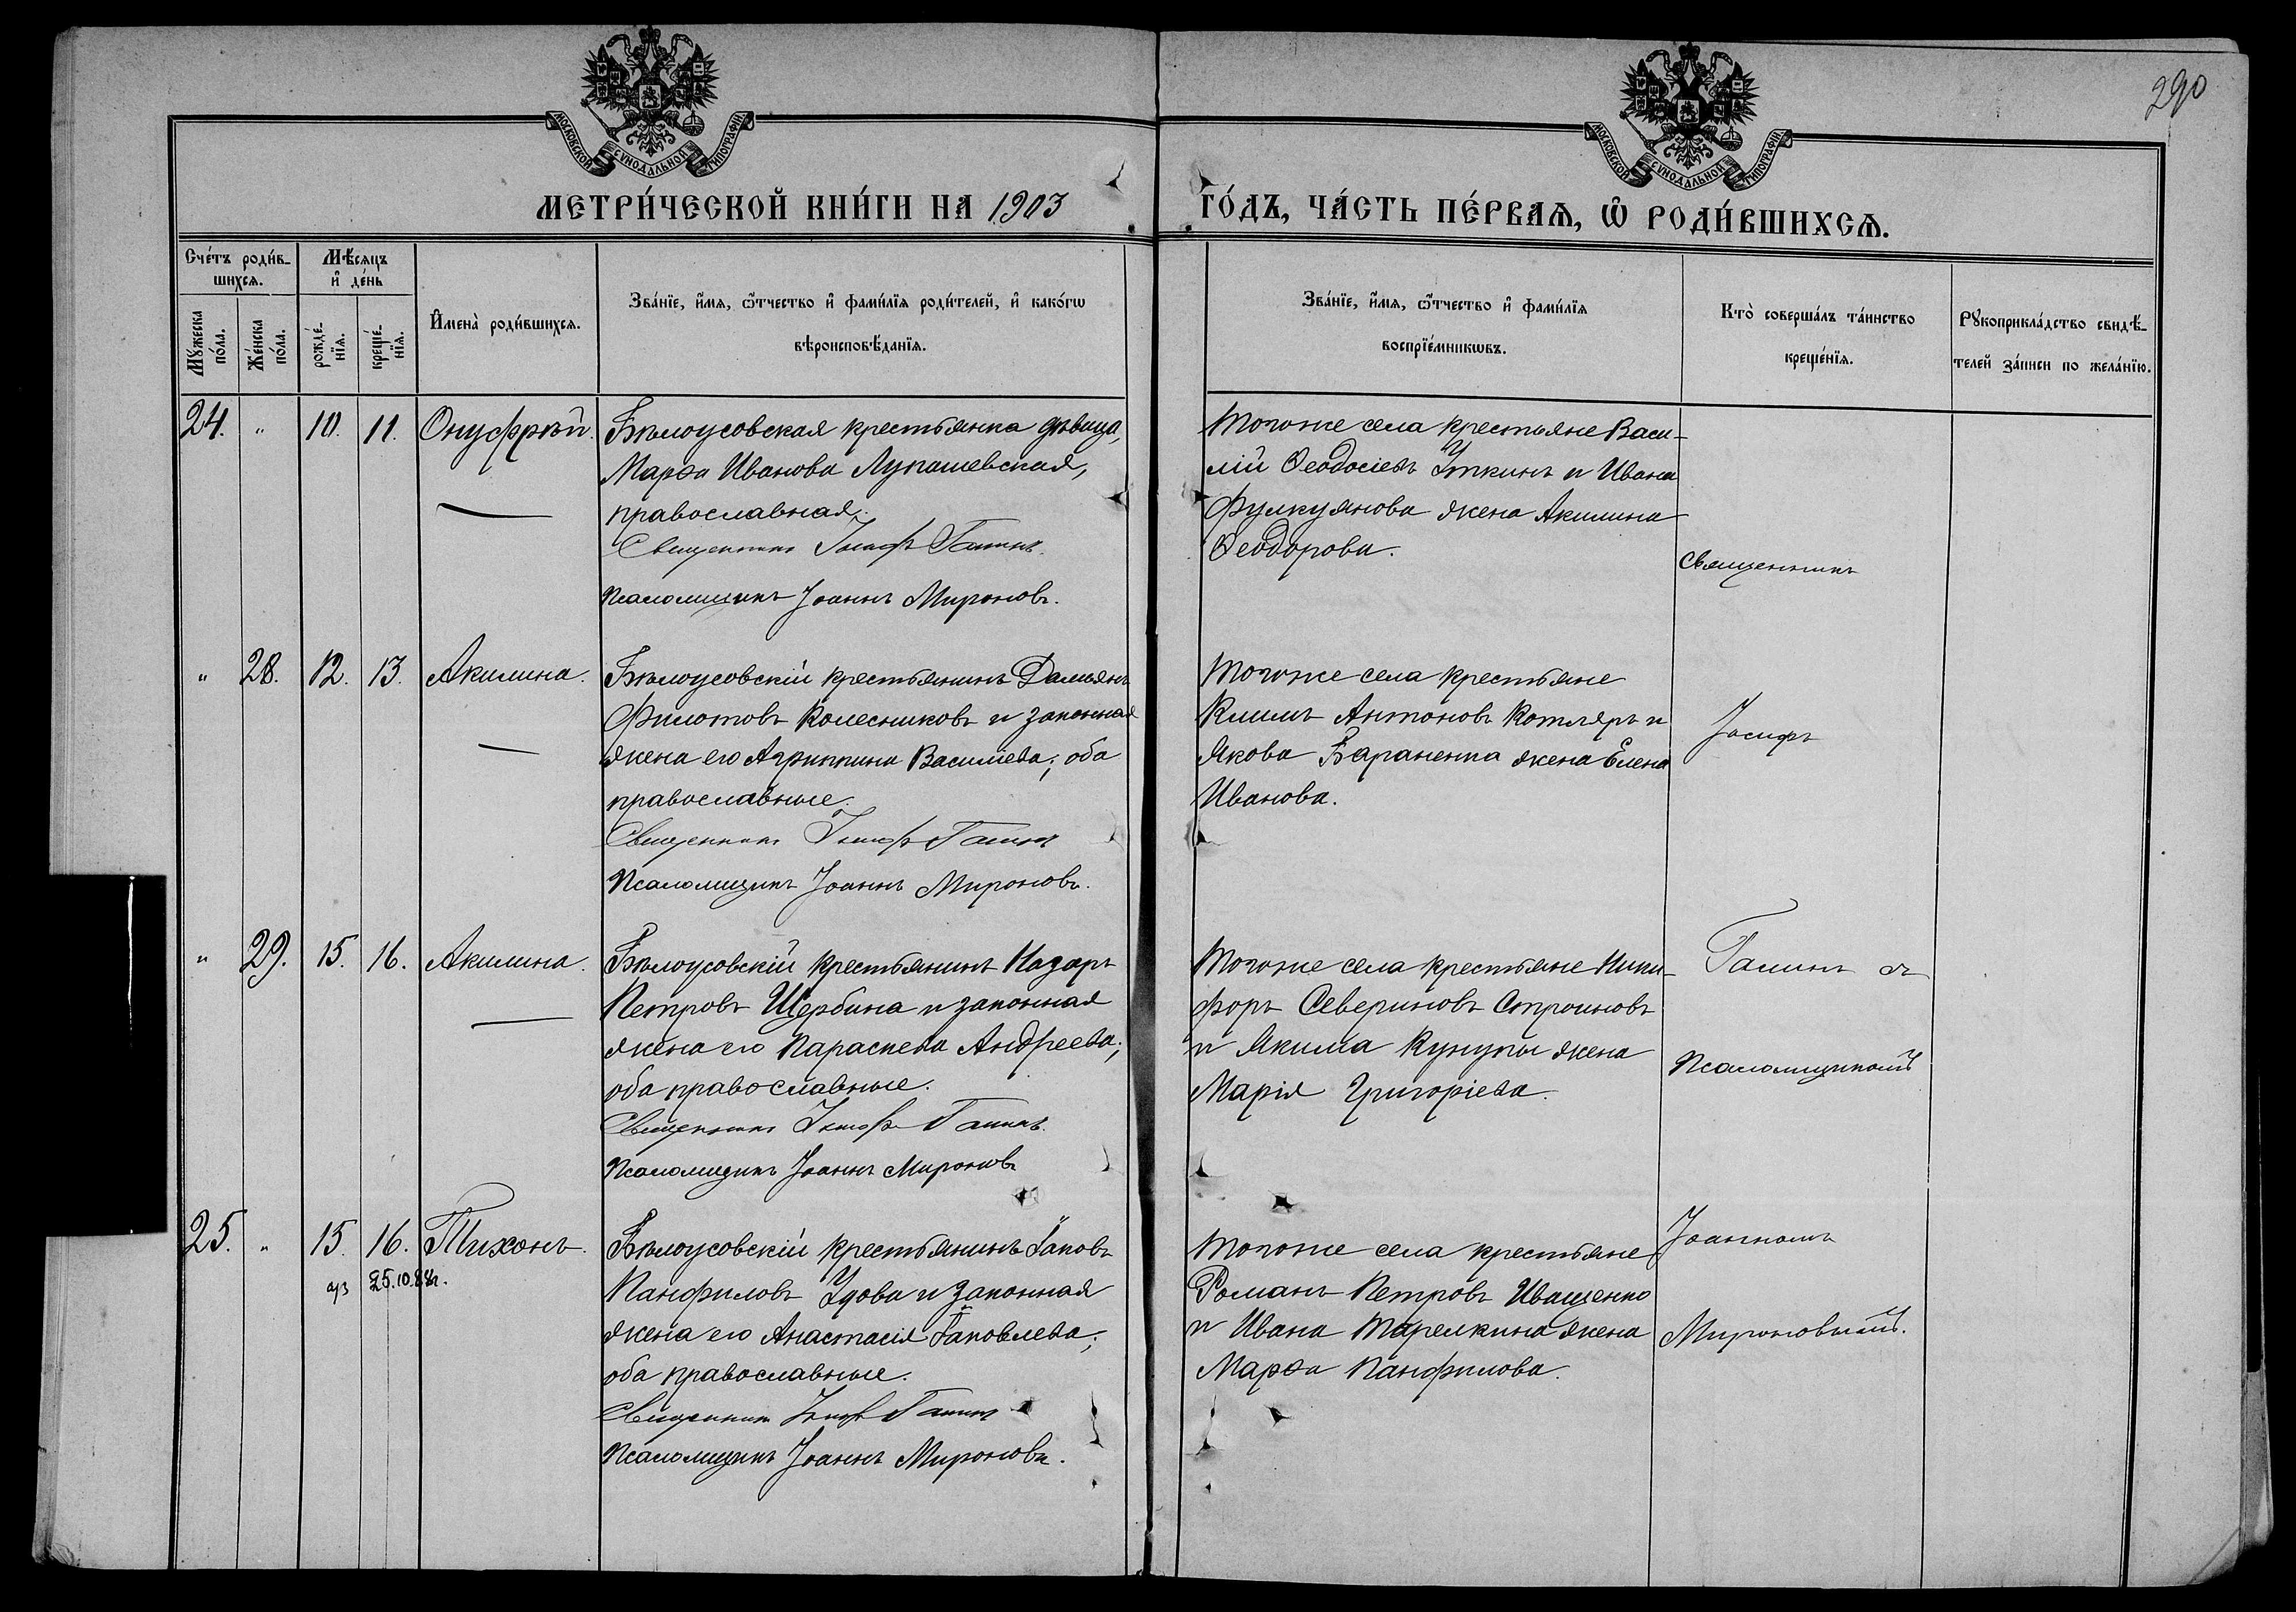 290
МОСКОВСКОЙ СѴНОДАЛЬНОЙ ТИПОГРАФІИ
МОСКОВСКОЙ СѴНОДАЛЬНОЙ ТИПОГРАФІИ
МЕТРИ́ЧЕСКОЙ КНИ́ГИ НА 1903
ГО́ДЪ, ЧА́СТЬ ПЕ́РВАЯ, Ѡ РОДИ́ВШИХСѦ.
Сче́тъ роди́в-
шихсѧ.
Мѣ́сяцъ
и҆ де́нь
Мꙋ́жеска
по́ла.
Же́нска
по́ла.
рожде́-
нїѧ.
креще́-
нїѧ.
И҆мена̀ роди́вшихсѧ.
Зва́нїе, и҆́мѧ, ѻ҆́тчество и҆ фами́лїѧ роди́телей, и҆ како́гѡ
вѣроисповѣ́данїѧ.
Зва́нїе, и҆́мѧ, ѻ҆́тчество и҆ фами́лїѧ
воспрїе́мникѡвъ.
Кто̀ соверша́лъ та́инство
креще́нїѧ.
Рꙋкоприкла́дство свидѣ́-
телей за́писи по жела́нїю.
24. " 10. 11. Онуфрій.
Бѣлоусовская крестьянка дѣвица,
Марѳа Иванова Лупашевская,
православная.
Священникъ Іосифъ Галинъ.
Псаломщикъ Іоаннъ Мироновъ.
Того же села крестьяне Васи-
лій Ѳеодосіевъ Уткинъ и Ивана
Фулкуянова жена Акилина
Ѳеодорова.
Священникъ
" 28. 12. 13. Акилина.
Бѣлоусовскій крестьянинъ Даміанъ
Филотовъ Колесниковъ и законная
жена его Агриппина Василіева; оба
православные.
Священникъ Іосифъ Галинъ
Псаломщикъ Іоаннъ Мироновъ.
Того же села крестьяне
Климъ Антоновъ Котляръ и
Якова Бараненка жена Елена
Иванова.
Іосифъ
" 29. 15. 16. Акилина.
Бѣлоусовскій крестьянинъ Назаръ
Петровъ Щербина и законная
жена его Параскева Андреева;
оба православные.
Священникъ Іосифъ Галинъ.
Псаломщикъ Іоаннъ Мироновъ
Того же села крестьяне Ники-
форъ Севериновъ Строиновъ
и Якима Кунупы жена
Марія Григоріева.
Галинъ съ
Псаломщикомъ
25. " 15. 16. Тихонъ.
25.10.
Бѣлоусовскій крестьянинъ Іаковъ
Панфиловъ Удова и законная
жена его Анастасія Іаковлева;
оба православные.
Священникъ Іосифъ Галинъ
Псаломщикъ Іоаннъ Мироновъ.
Того же села крестьяне
Романъ Петровъ Иващенко
и Ивана Тарелкина жена
Марѳа Панфилова.
Іоанномъ
Мироновымъ.